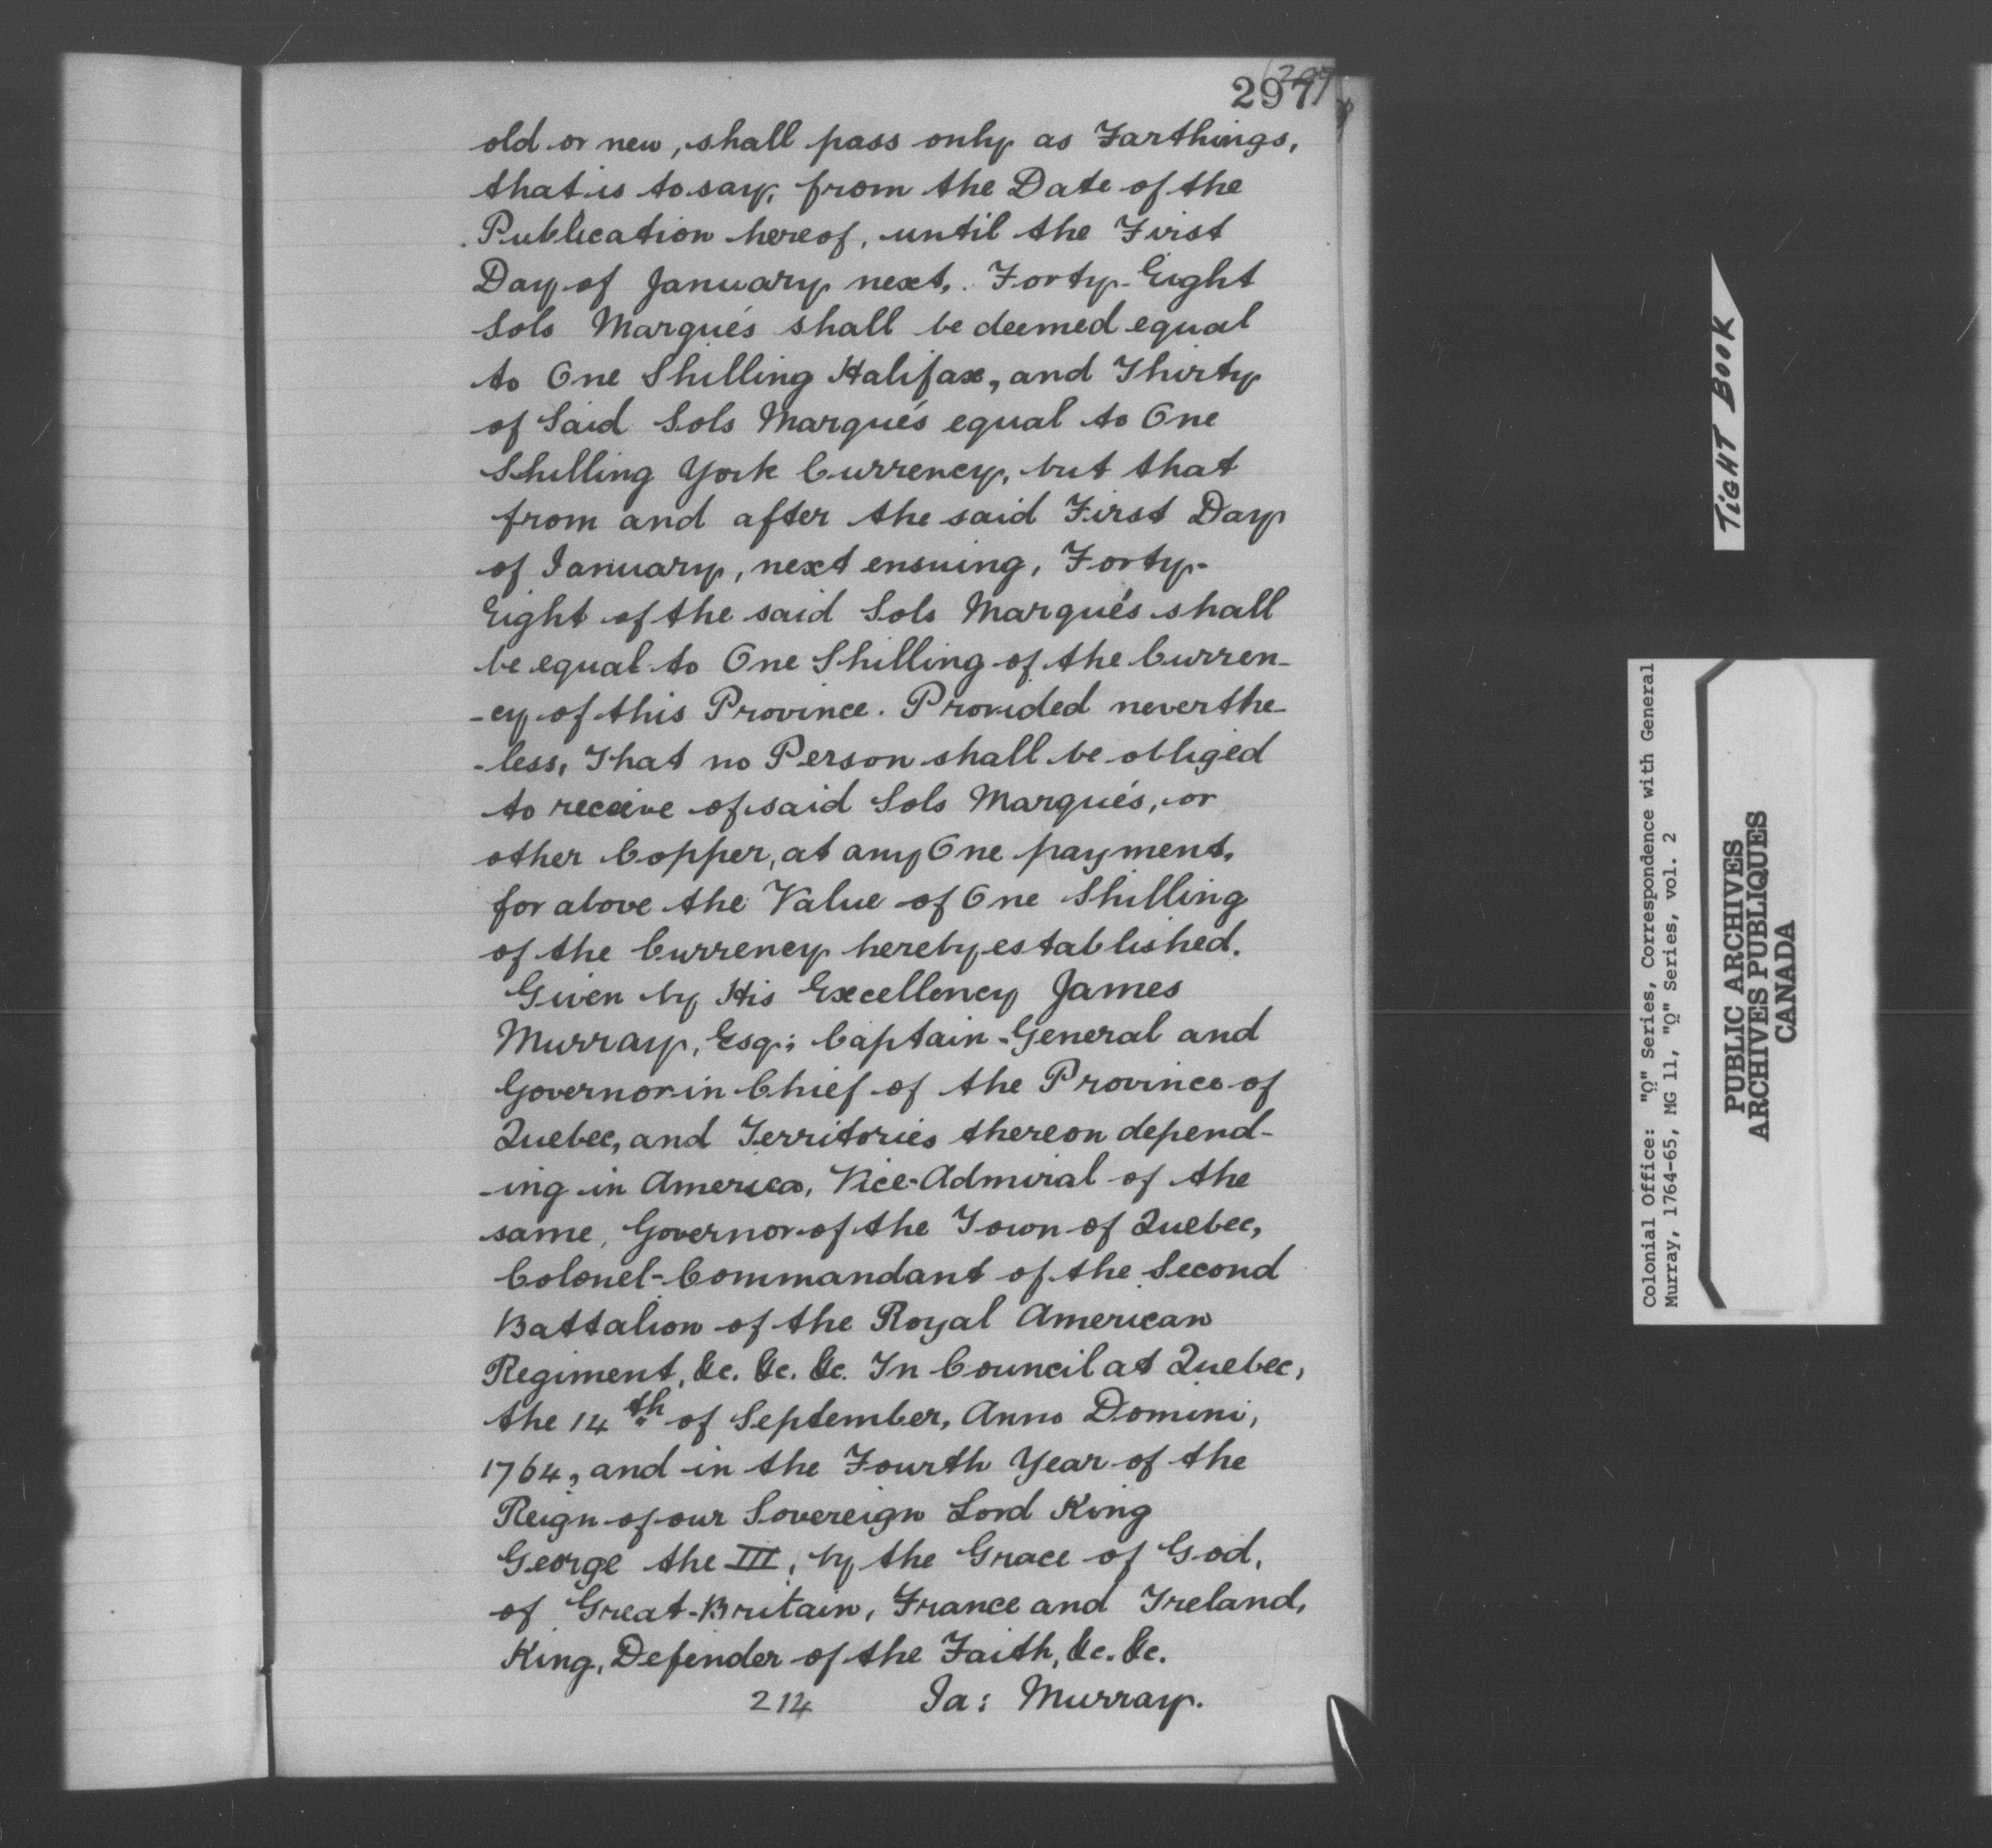 297
old or new, shall pass only as Farthings,
that is to say, from the Date of the
Publication hereof, until the First
Day of January next, Forty-Eight
Sols Marqués shall be deemed equal
to One Shilling Halifax, and Thirty
of Said Sols Marqués equal to One
Shilling York Currency, but that
from and after the said First Day
of January, next ensuing, Forty-
Eight of the said Sols Marqués shall
be equal to One Shilling of the Curren-
-cy of this Province. Provided neverthe-
-less, That no Person shall be obliged
to receive of said Sols Marqués, or
other Copper, at any One payment,
for above the Value of One Shilling
of the Currency hereby established.
Given by His Excellency James
Murray, Esq.; Captain-General and
Governor in Chief of the Province of
Quebec, and Territories thereon depend-
-ing in America, Vice-Admiral of the
same, Governor of the Town of Quebec,
Colonel-Commandant of the Second
Battalion of the Royal American
Regiment, &c. &c. &c. In Council at Quebec,
the 14th of September, Anno Domini,
1764, and in the Fourth Year of the
Reign of our Sovereign Lord King
George the III, by the Grace of God,
of Great-Britain, France and Ireland,
King, Defender of the Faith, &c. &c.
214 Ja: Murray.
TIGHT BOOK
Colonial Office: "Q" Series, Correspondence with General
Murray, 1764-65, MG 11, "Q" Series, vol. 2
PUBLIC ARCHIVES
ARCHIVES PUBLIQUES
CANADA